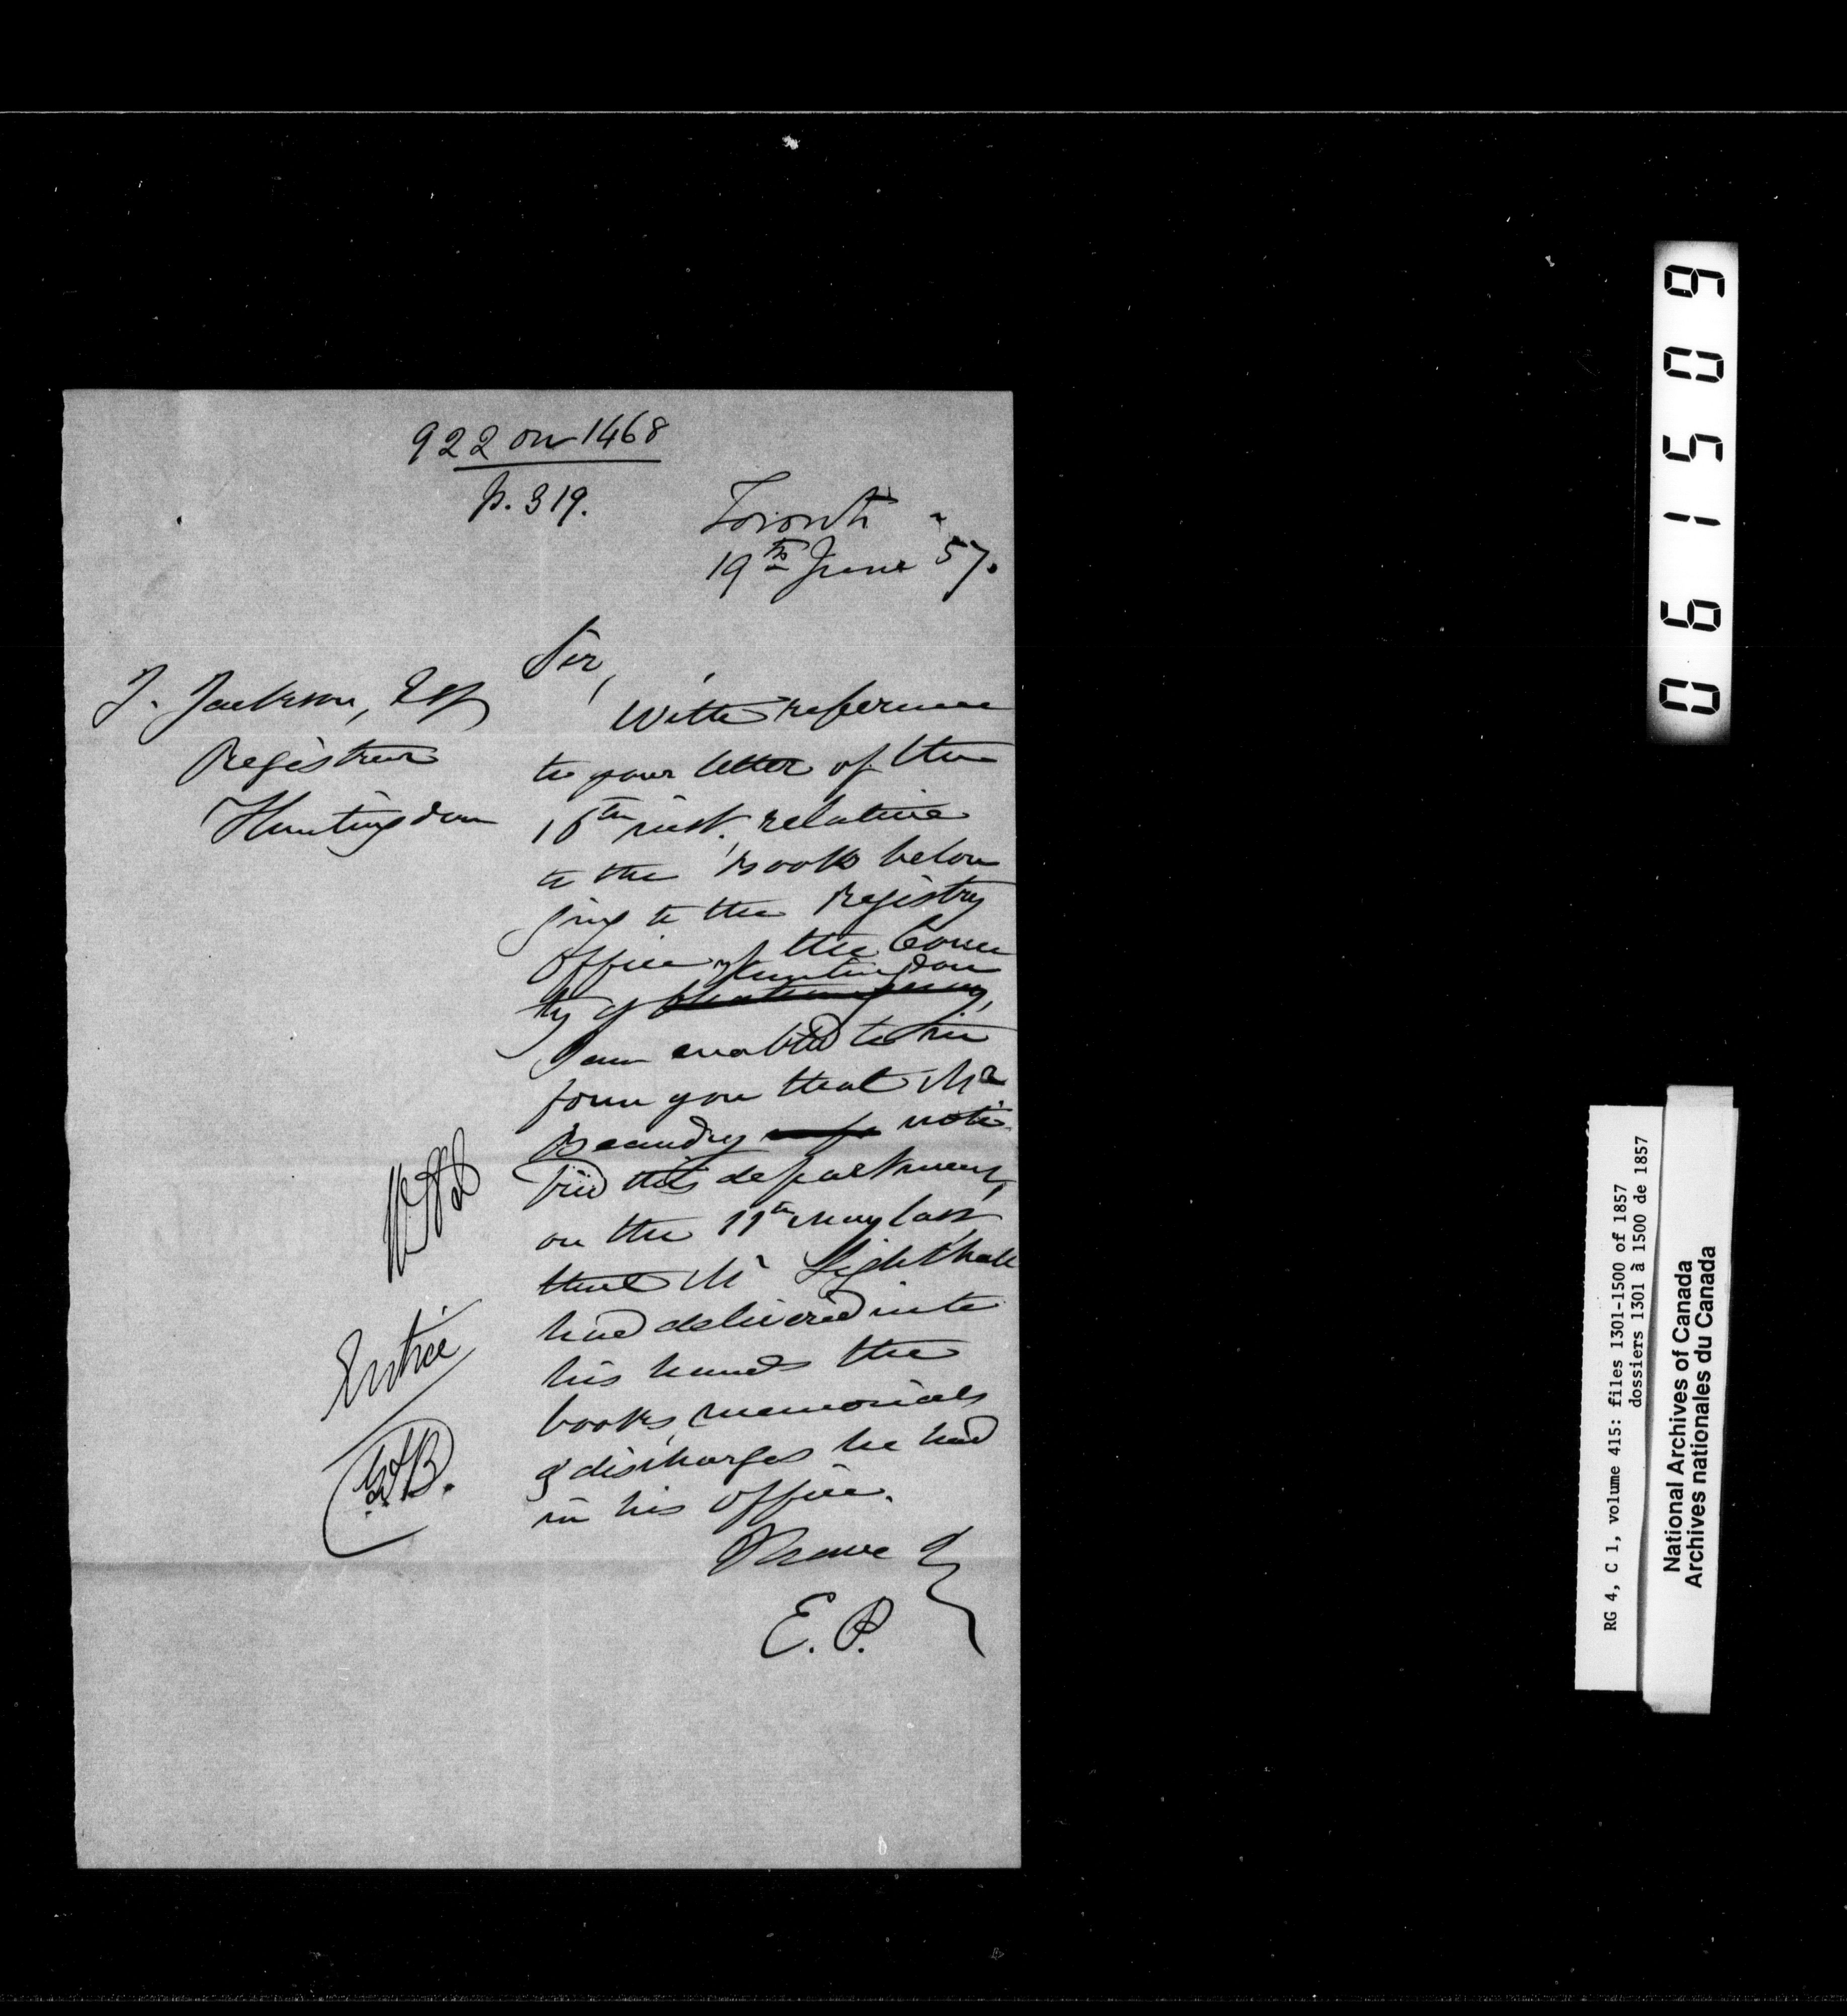 922 on 1468
p. 319.
Toronto
19th June 57.
Sir,
J. Jackson, Esq
Registrar
Huntingdon
With reference
to your letter of the
16th inst. relative
to the Books belon
ging to the Registry
Office of the Coun
ty of Huntingdon
I am enabled to in
form you that Mr
Beaudry noti
fied this department,
on the 11th May last,
that Mr Lighthall
had delivered into
his hands the
books, memorials
& discharges he had
in his office.
I have &
E. P.
Entrée
G.B.
061509
RG 4, C 1, volume 415: files 1301-1500 of 1857
dossiers 1301 à 1500 de 1857
National Archives of Canada
Archives nationales du Canada